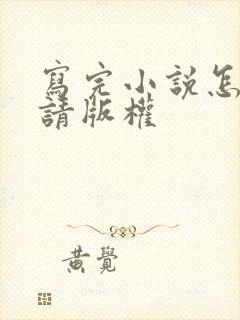 寫完小說怎
請版權
黃覺